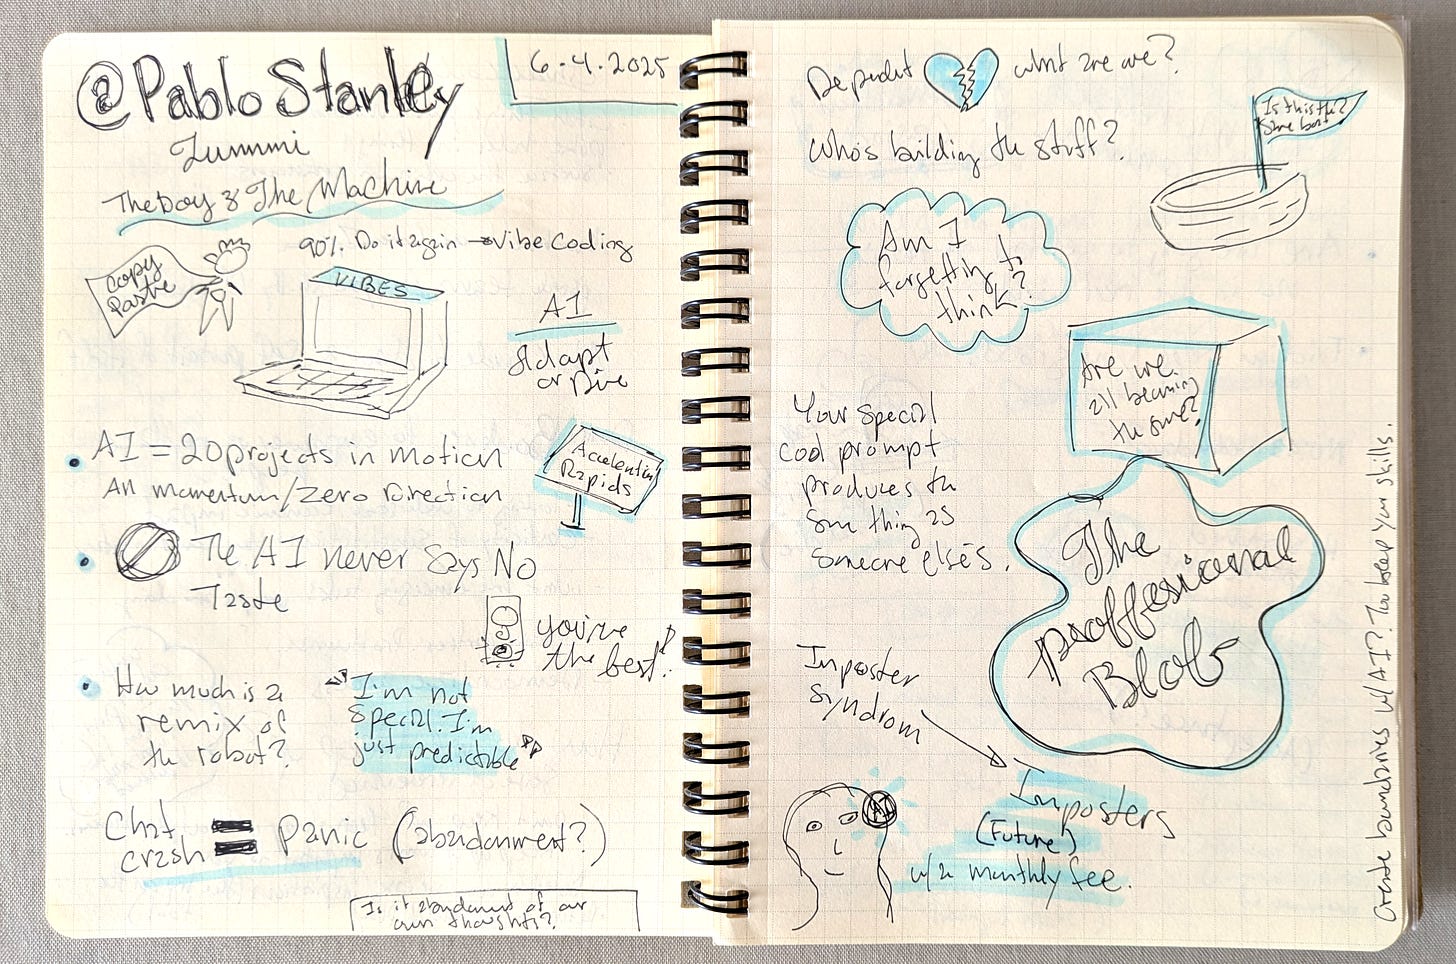 @Pablo Stanley
6.4.2025
The boy & The Machine
90%. Do it again → Vibe Coding
Copy
Paste
VIBES
AI
Adapt
or Die
AI = 20 projects in motion
All momentum/Zero Direction
Rapids
The AI never says No
Taste
you're
the best!
How much is a
remix of
the robot?
"I'm not
special. I'm
just predictable"
Chat
crash = Panic (abandonment?)
Is it abandonment of our
own thoughts?
what are we?
Who's building the stuff?
Is this the?
Same boat
Am I
forgetting to
think?
Are we
all becoming
the same?
Your special
cool prompt
produces the
same thing as
someone else's.
The
proffessional
Blob
Imposter
Syndrom
Imposters
(Future)
w/a monthly fee.
AI
Create boundaries w/AI? To keep your skills.